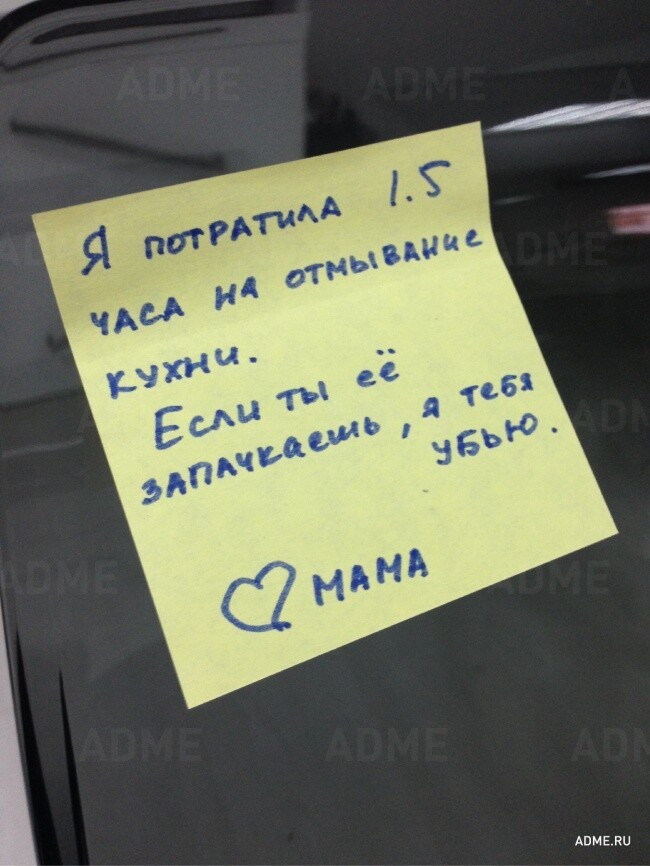 Я ПОТРАТИЛА 1.5
ЧАСА НА ОТМЫВАНИЕ
КУХНИ.
Если ты её
ЗАПАЧКАЕШЬ, я тебя
УБЬЮ.
♡ МАМА
ADME
ADME
ADME
ADME
ADME
ADME
ADME
ADME
ADME
ADME.RU